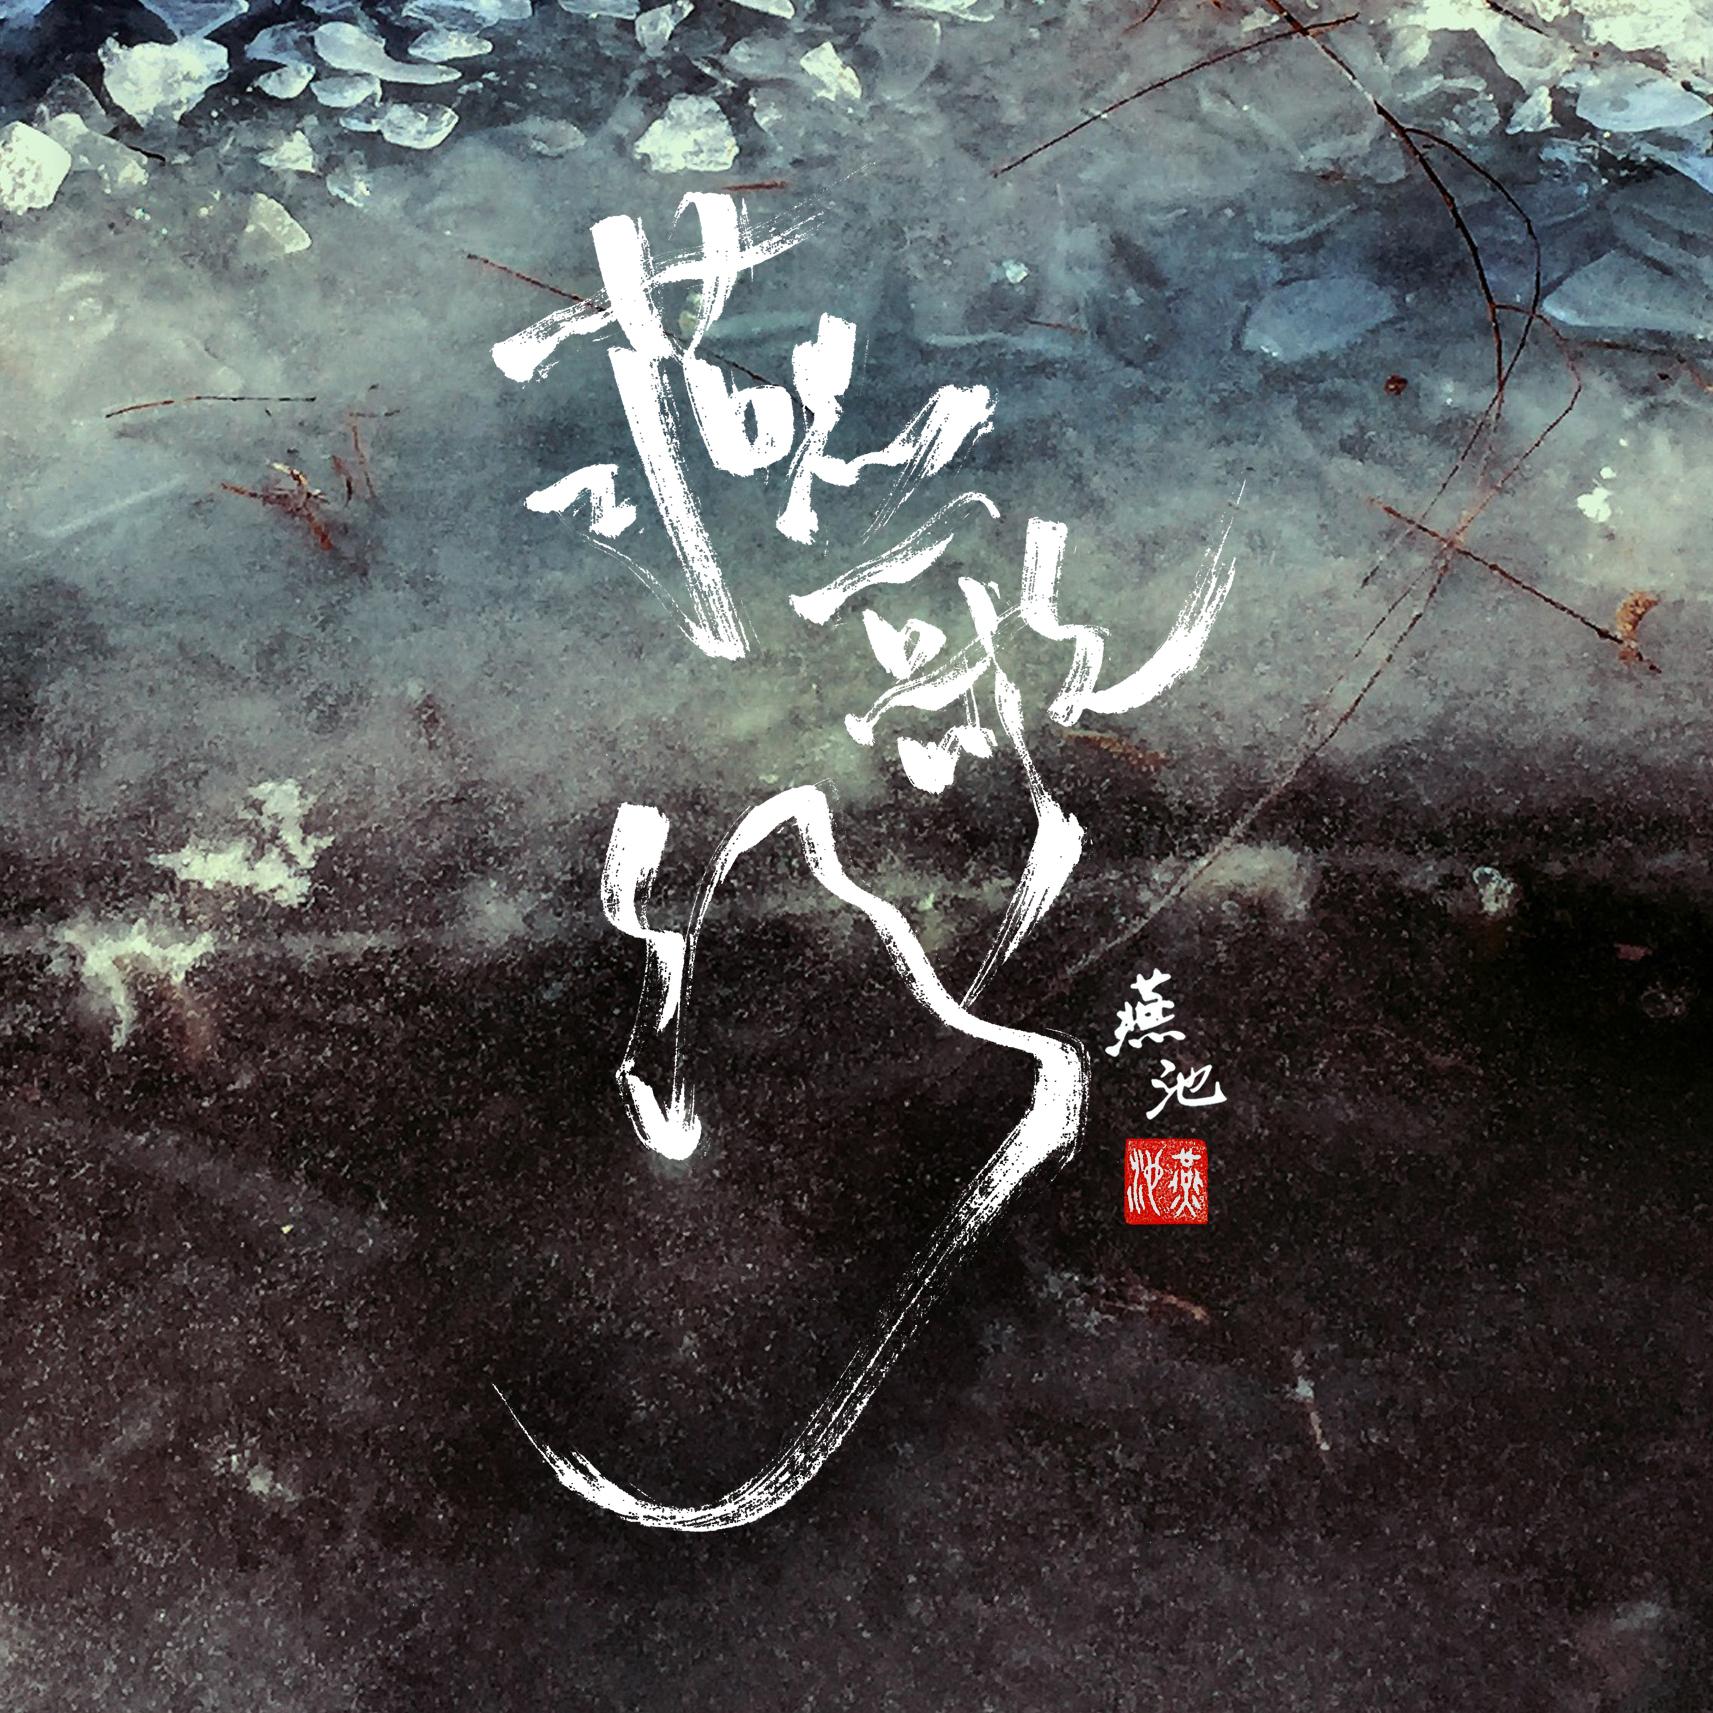 燕歌行
燕池
燕池